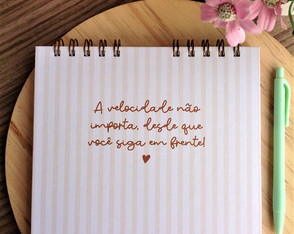 A velocidade não
importa, desde que
você siga em frente!